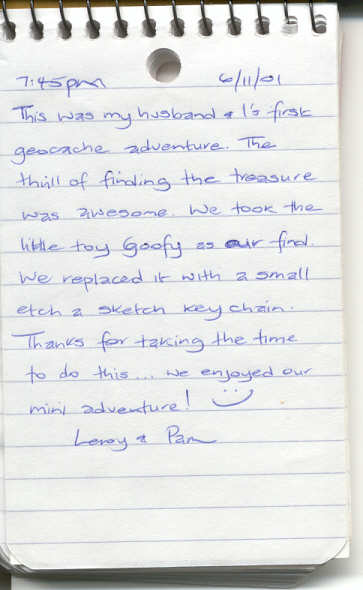 7:45pm 6/11/01
This was my husband & I's first
geocache adventure. The
thrill of finding the treasure
was awesome. We took the
little toy Goofy as our find.
We replaced it with a small
etch a sketch key chain.
Thanks for taking the time
to do this... we enjoyed our
mini adventure!
Leroy & Pam